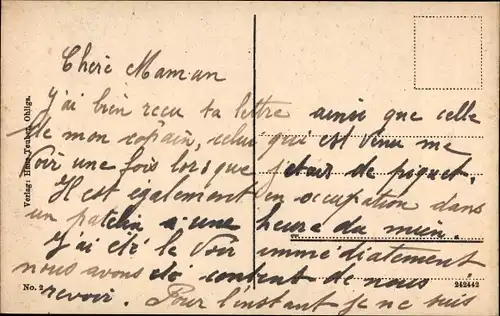 Chère Maman
J'ai bien reçu ta lettre ainsi que celle
de mon copain, celui qui est venu me
voir une fois lorsque j'étais de piquet.
Il est également en occupation dans
un patelin à une heure du mien.
J'ai été le voir immédiatement
nous avons été content de nous
revoir. Pour l'instant je ne suis
Verlag: Ohligs.
No. 2
242442